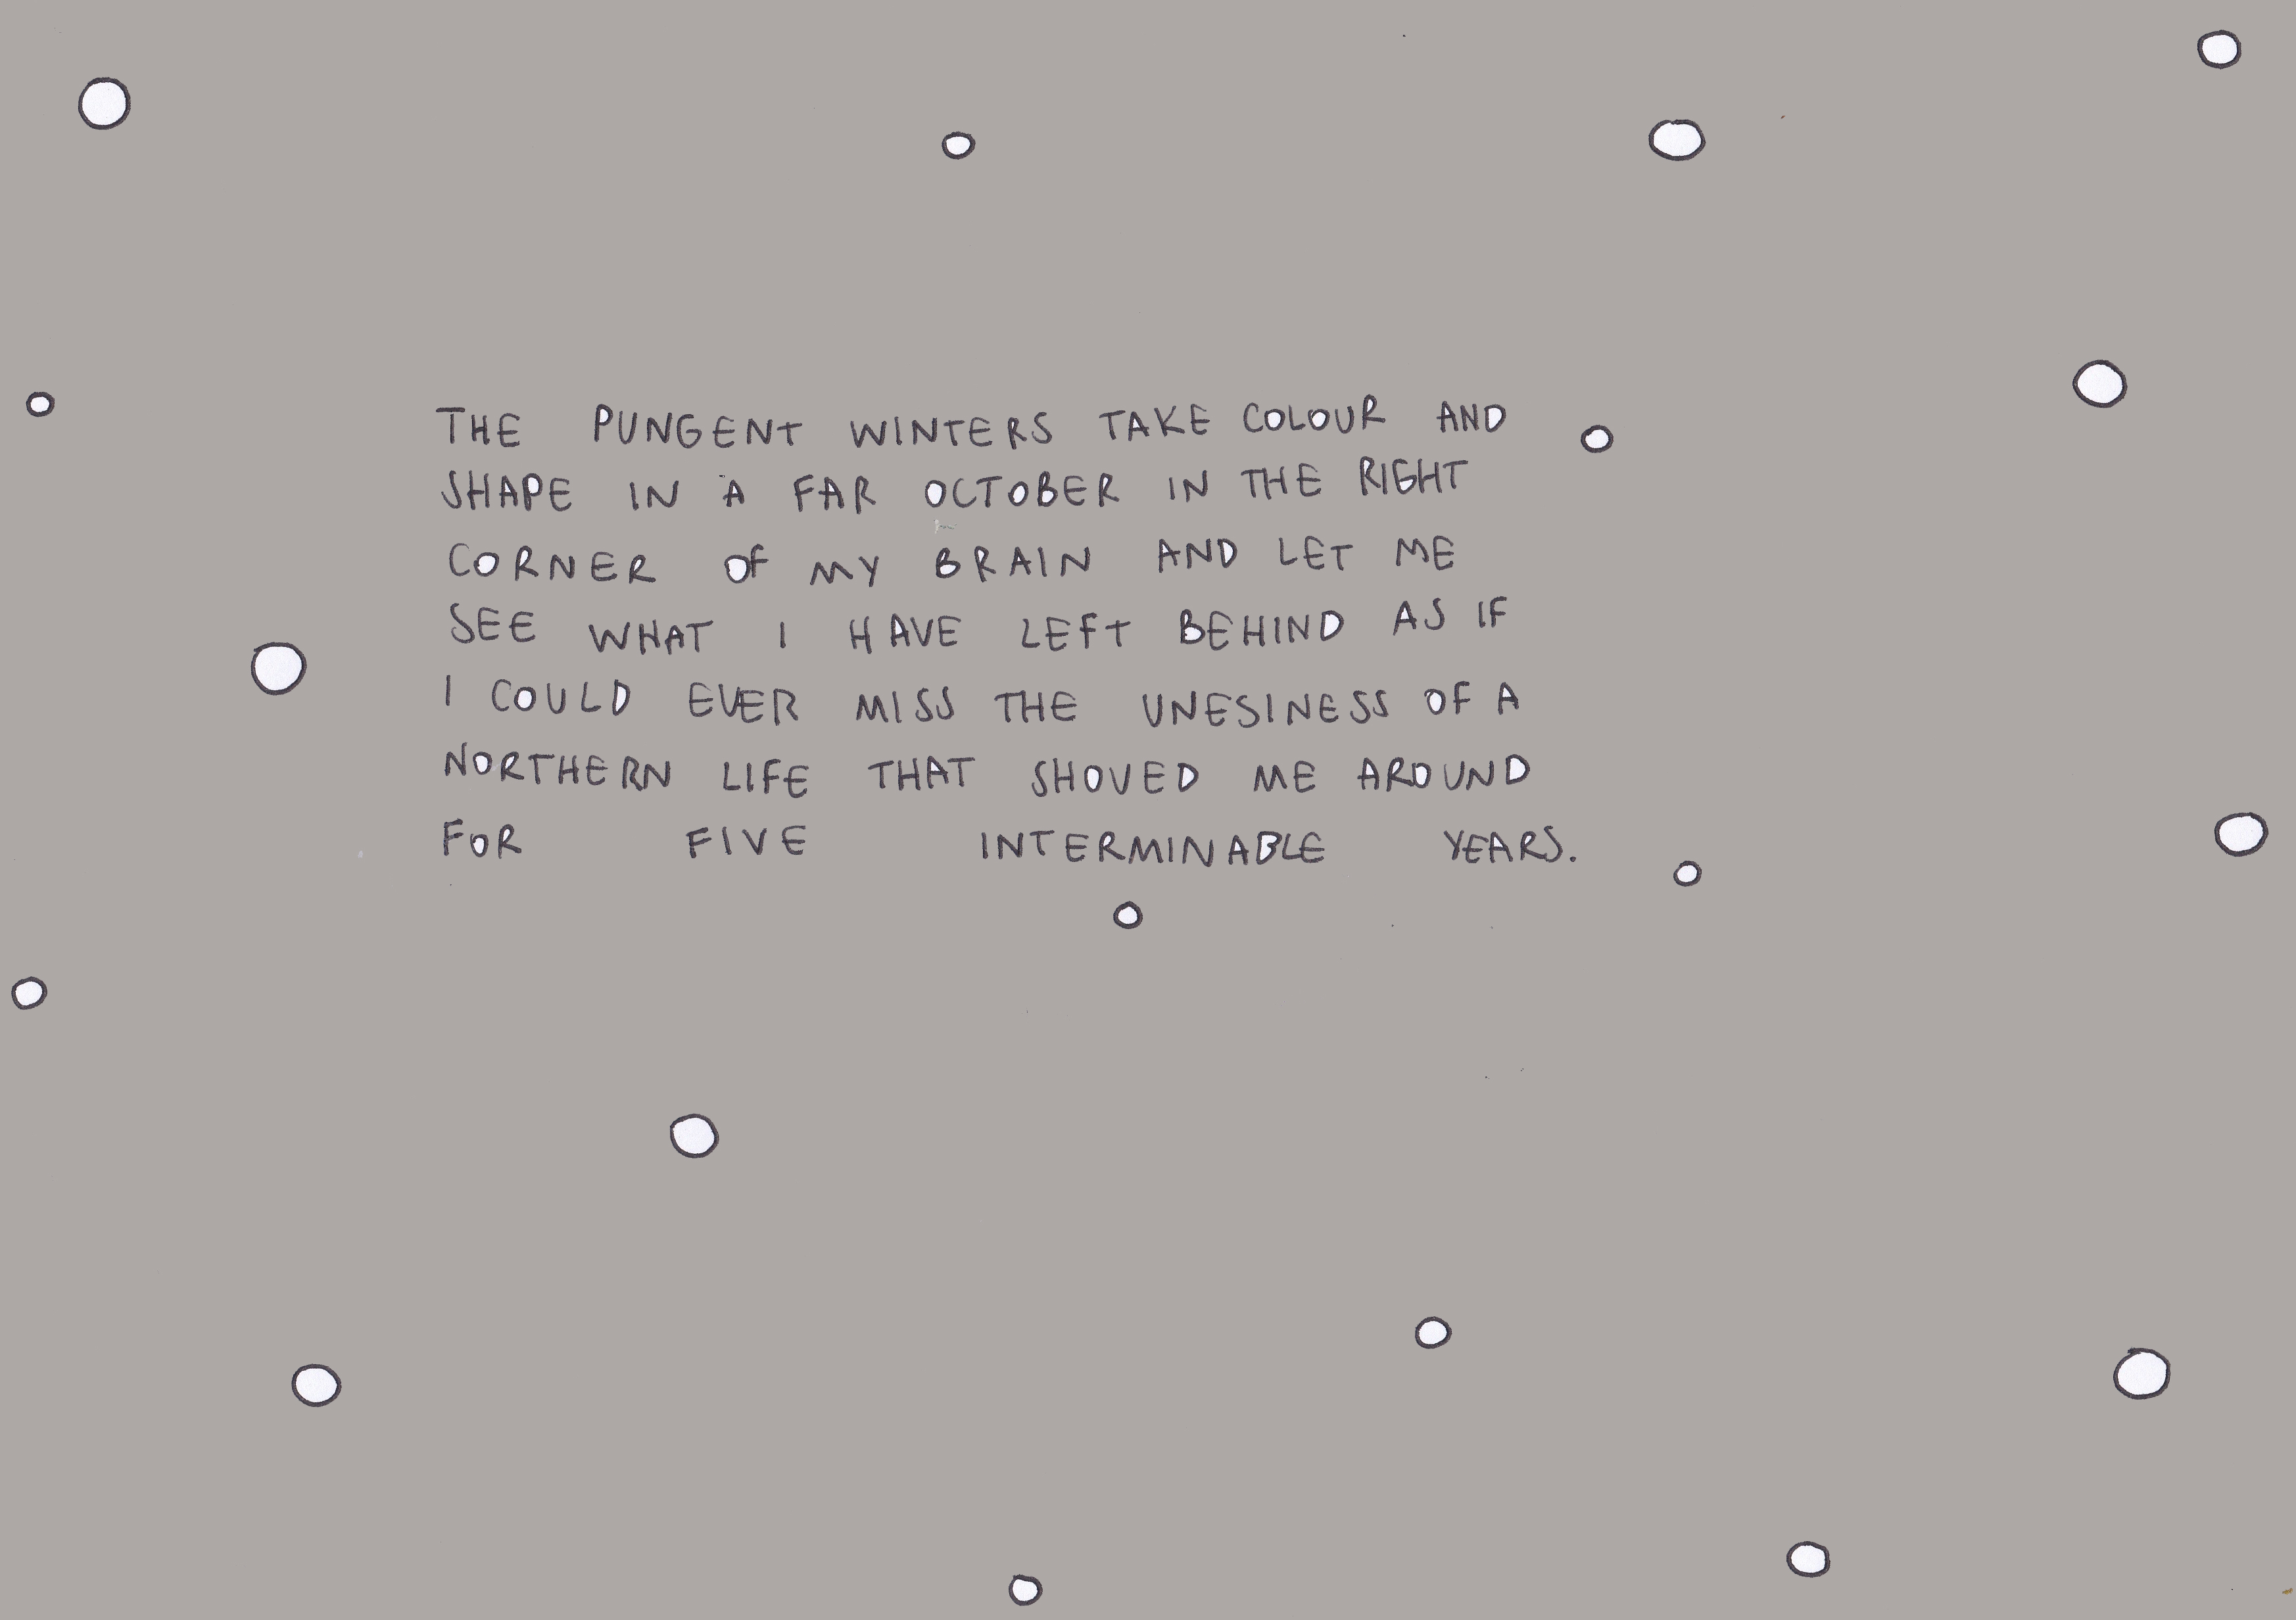 THE PUNGENT WINTERS TAKE COLOUR AND
SHAPE IN A FAR OCTOBER IN THE RIGHT
CORNER OF MY BRAIN AND LET ME
SEE WHAT I HAVE LEFT BEHIND AS IF
I COULD EVER MISS THE UNESINESS OF A
NORTHERN LIFE THAT SHOVED ME AROUND
FOR FIVE INTERMINABLE YEARS.